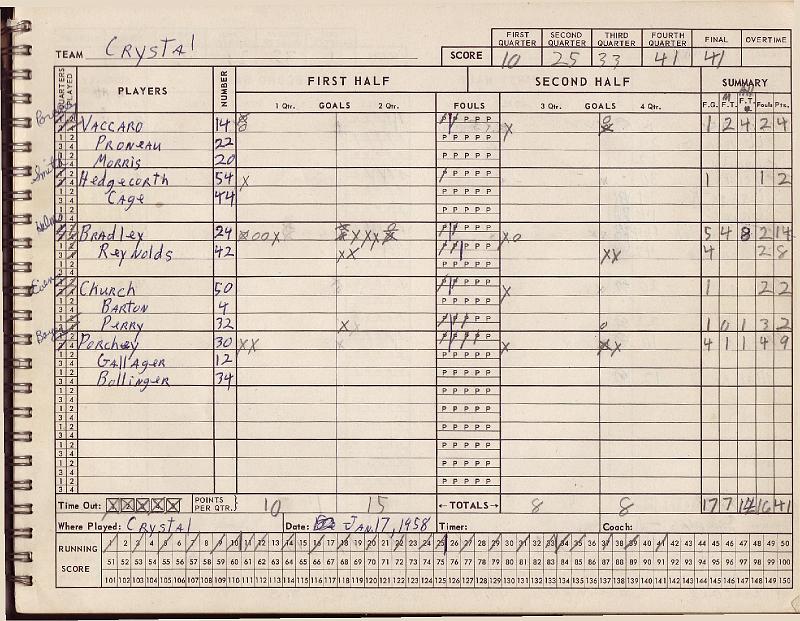 FIRST QUARTER SECOND QUARTER THIRD QUARTER FOURTH QUARTER FINAL OVERTIME
TEAM Crystal SCORE 10 25 33 41 41
QUARTERS PLAYED PLAYERS NUMBER FIRST HALF SECOND HALF SUMMARY
1 Qtr. GOALS 2 Qtr. FOULS 3 Qtr. GOALS 4 Qtr. F.G. F.T. F.T. Fouls Pts.
VACCARO 14 1 2 4 2 4
PRONEAU 22
MORRIS 20
Hedgecorth 54 X 1 1 2
CAGE 44
BRADLEY 24 5 4 8 2 14
Reynolds 42 XX XX 4 2 8
Church 50 X 1 2 2
BARTON 4
PERRY 32 X o 1 0 1 3 2
PORCHEY 30 XX X 4 1 1 4 9
GALLAGER 12
Bollinger 34
Time Out: POINTS PER QTR. 10 15 ←TOTALS→ 8 8 17 7 14 16 41
Where Played: Crystal Date: JAN. 17, 1958 Timer: Coach:
RUNNING SCORE
1 2 3 4 5 6 7 8 9 10 11 12 13 14 15 16 17 18 19 20 21 22 23 24 25 26 27 28 29 30 31 32 33 34 35 36 37 38 39 40 41 42 43 44 45 46 47 48 49 50
51 52 53 54 55 56 57 58 59 60 61 62 63 64 65 66 67 68 69 70 71 72 73 74 75 76 77 78 79 80 81 82 83 84 85 86 87 88 89 90 91 92 93 94 95 96 97 98 99 100
101 102 103 104 105 106 107 108 109 110 111 112 113 114 115 116 117 118 119 120 121 122 123 124 125 126 127 128 129 130 131 132 133 134 135 136 137 138 139 140 141 142 143 144 145 146 147 148 149 150